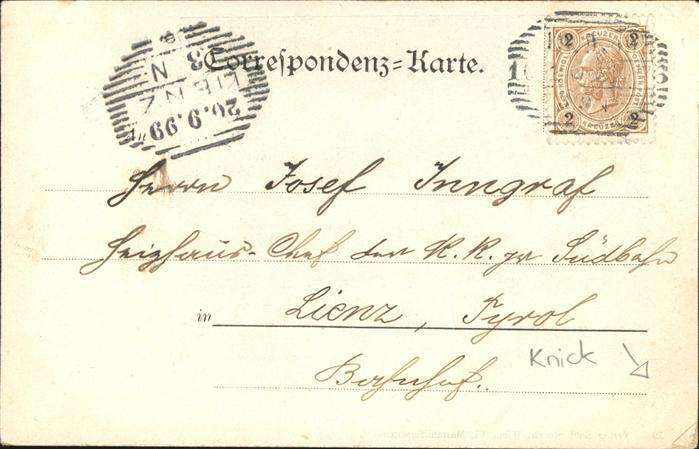 Correspondenz-Karte.
LIENZ
20.9.99
2 KREUZER 2
2 KREUZER 2
Herrn Josef Inngraf
Heizhaus-Chef der K. K. pr Südbahn
in Lienz, Tyrol
Bahnhof.
Knick